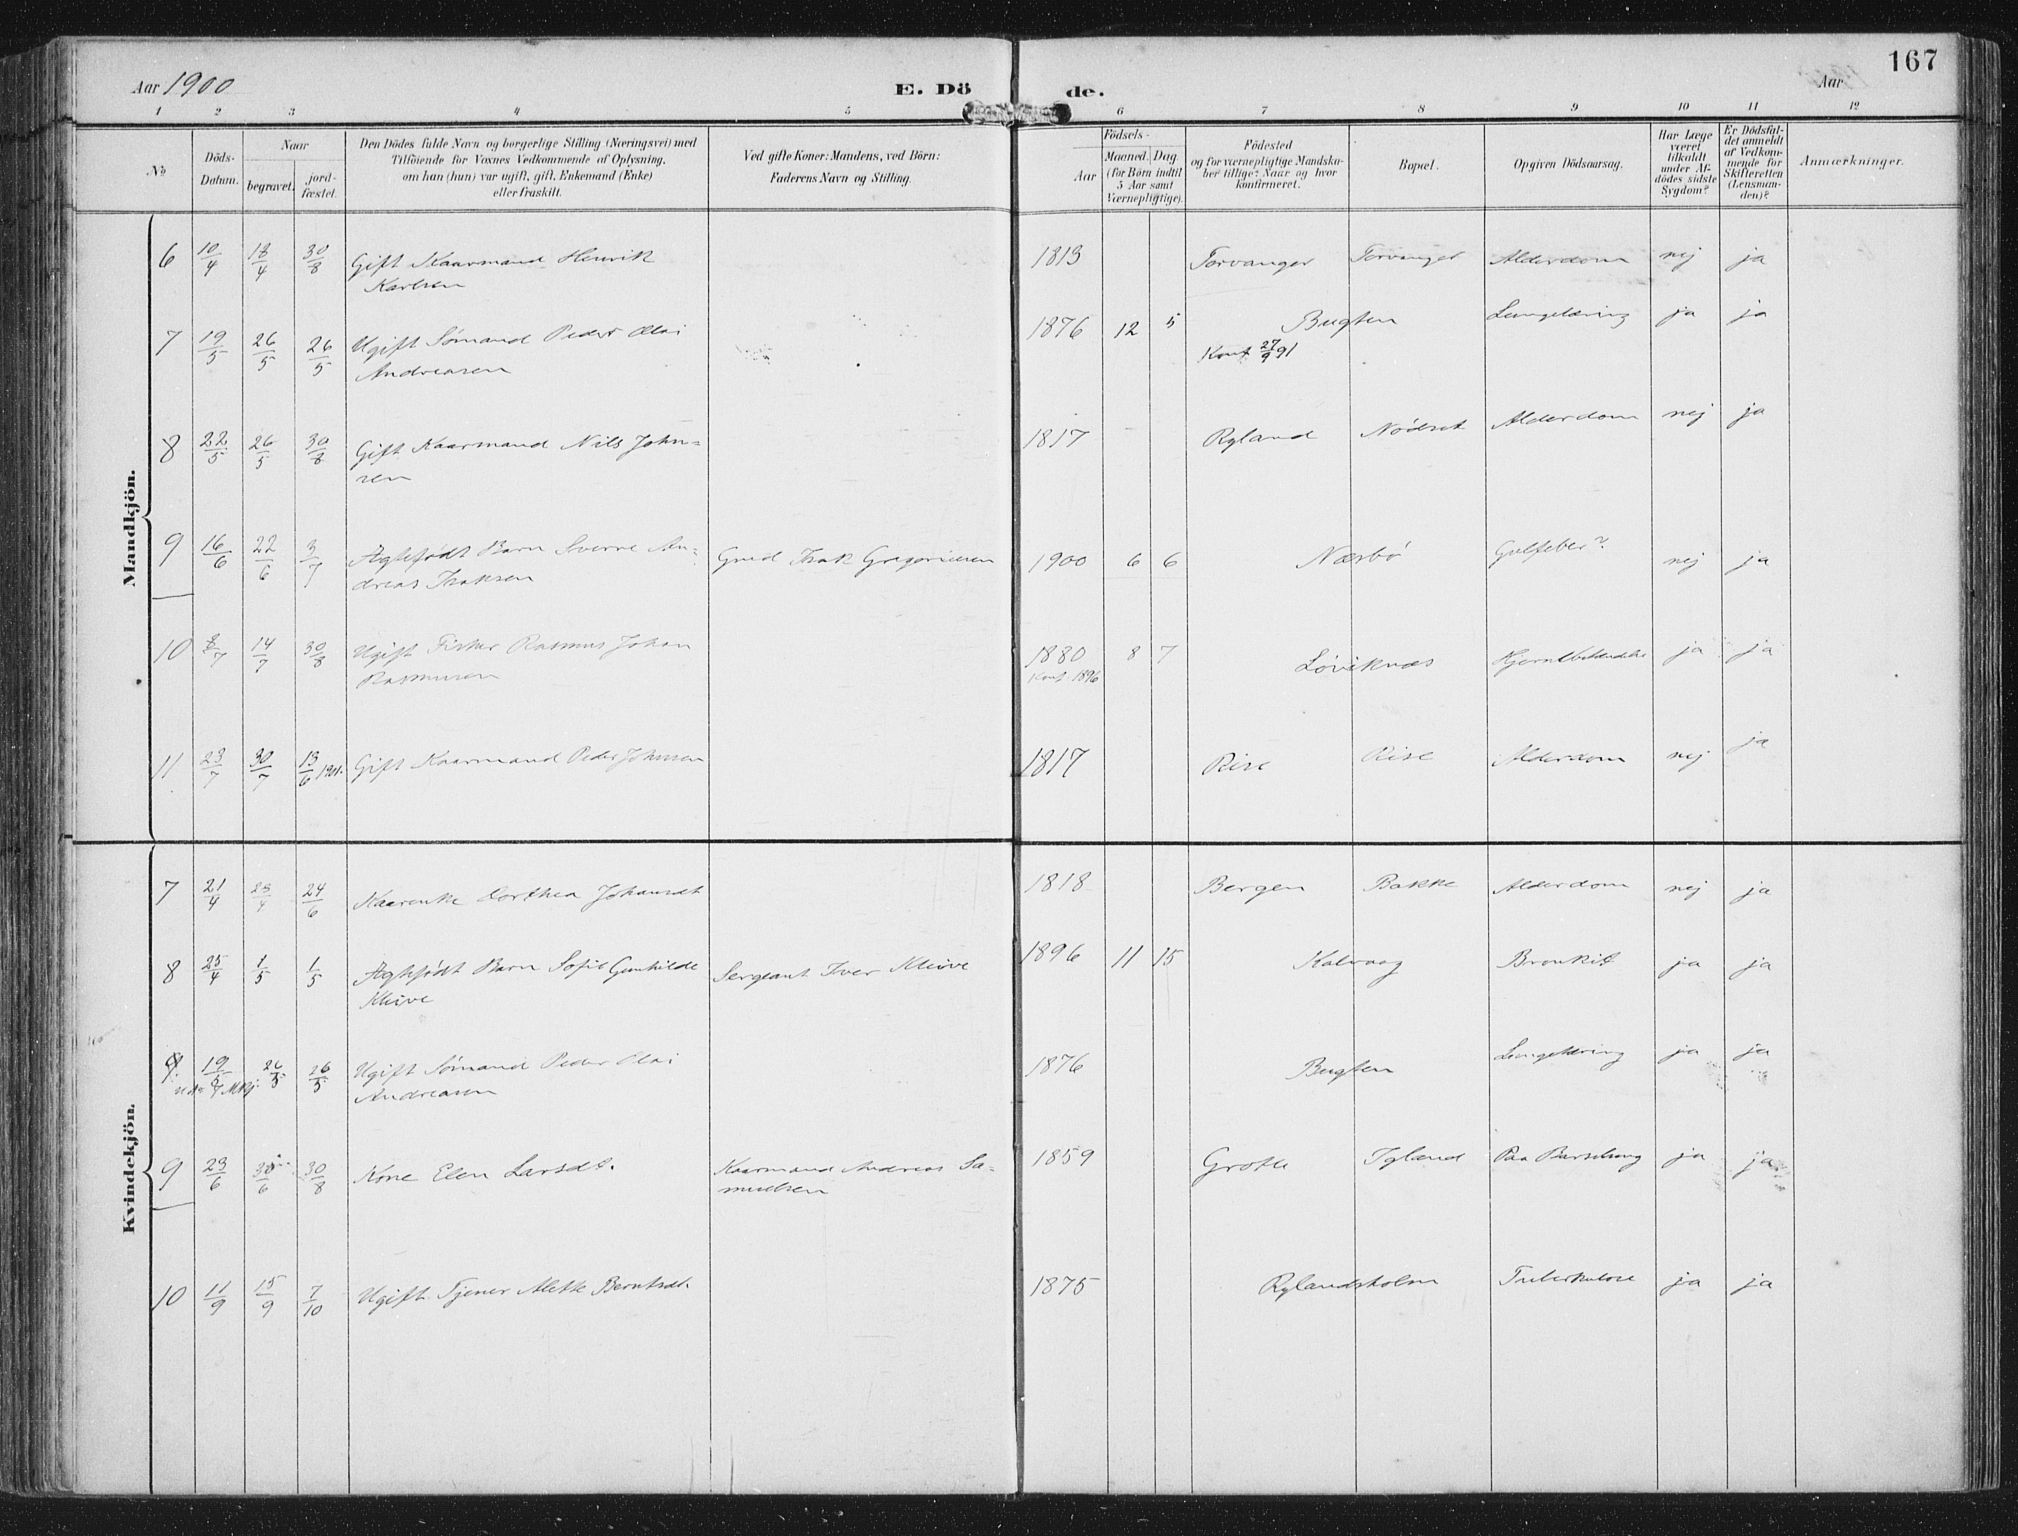 167
Aar 1900
E. Dö de.
Aar
1 2 3 4 5 6 7 8 9 10 11 12
No
Döds-Datum.
Naar
begravet.
jord-fæstet.
Den Dödes fulde Navn og borgerlige Stilling (Næringsvei) med
Tilföiende for Voxnes Vedkommende af Oplysning,
om han (hun) var ugift, gift, Enkemand (Enke)
eller fraskilt.
Ved gifte Koner: Mandens, ved Börn:
Faderens Navn og Stilling.
Födsels-
Aar
Maaned. Dag
(for Börn indtil
5 Aar samt
Værnepligtige).
Födested
og for værnepligtige Mandska-
ber tillige: Naar og hvor
konfirmeret.
Bopæl.
Opgiven Dödsaarsag.
Har Læge
været
tilkaldt
under Af-
dödes sidste
Sygdom?
Er Dödsfal-
det anmeldt
af Vedkom-
mende for
Skifteretten
(Lensman-
den)?
Anmærkninger.
Mandkjön.
6 10/4 18/4 30/8 Gift Kaarmand Henrik 1813 Torvanger Torvanger Alderdom nej ja
Karlsen
7 19/5 26/5 26/5 Ugift Sømand Peder Olai 1876 12 5 Bugten Lungetæring ja ja
Andreasen Konf 27/9 91
8 22/5 26/5 30/8 Gift Kaarmand Nils John- 1817 Ryland Nødset Alderdom nej ja
sen
9 16/6 22/6 3/7 Ægtefødt Barn Sverre An- Gmd Isak Gregoriussen 1900 6 6 Nærbø Gulfeber? nej ja
dreas Isaksen
10 8/7 14/7 30/8 Ugift Fisker Rasmus Johan 1880 8 7 Løviknæs ja ja
Rasmussen Konf. 1896
11 23/7 30/7 13/6 1901. Gift Kaarmand Peder Johnsen 1817 Rise Rise Alderdom nej ja
Kvindekjön.
7 21/4 23/4 24/6 Kaarenke Dorthea Johansdt 1818 Bergen Bakke Alderdom nej ja
8 25/4 1/5 1/5 Ægtefødt Barn Sofie Gunhilde Sergeant Iver Kleive 1896 11 15 Kalvaag Bronkit ja ja
Kleive
9. 19/5 26/5 26/5 Ugift Sømand Peder Olai 1876 Bugten Lungetæring ja ja
7 Mkj. Andreasen
9 23/6 30/6 30/8 Kone Elen Larsdt. Kaarmand Andreas Sa- 1859 Grotle Igland Paa Barselseng ja ja
muelsen
10 11/9 15/9 7/10 Ugift Tjener Alette Berntsdt. 1875 Rylandsholm Tuberkulose ja ja